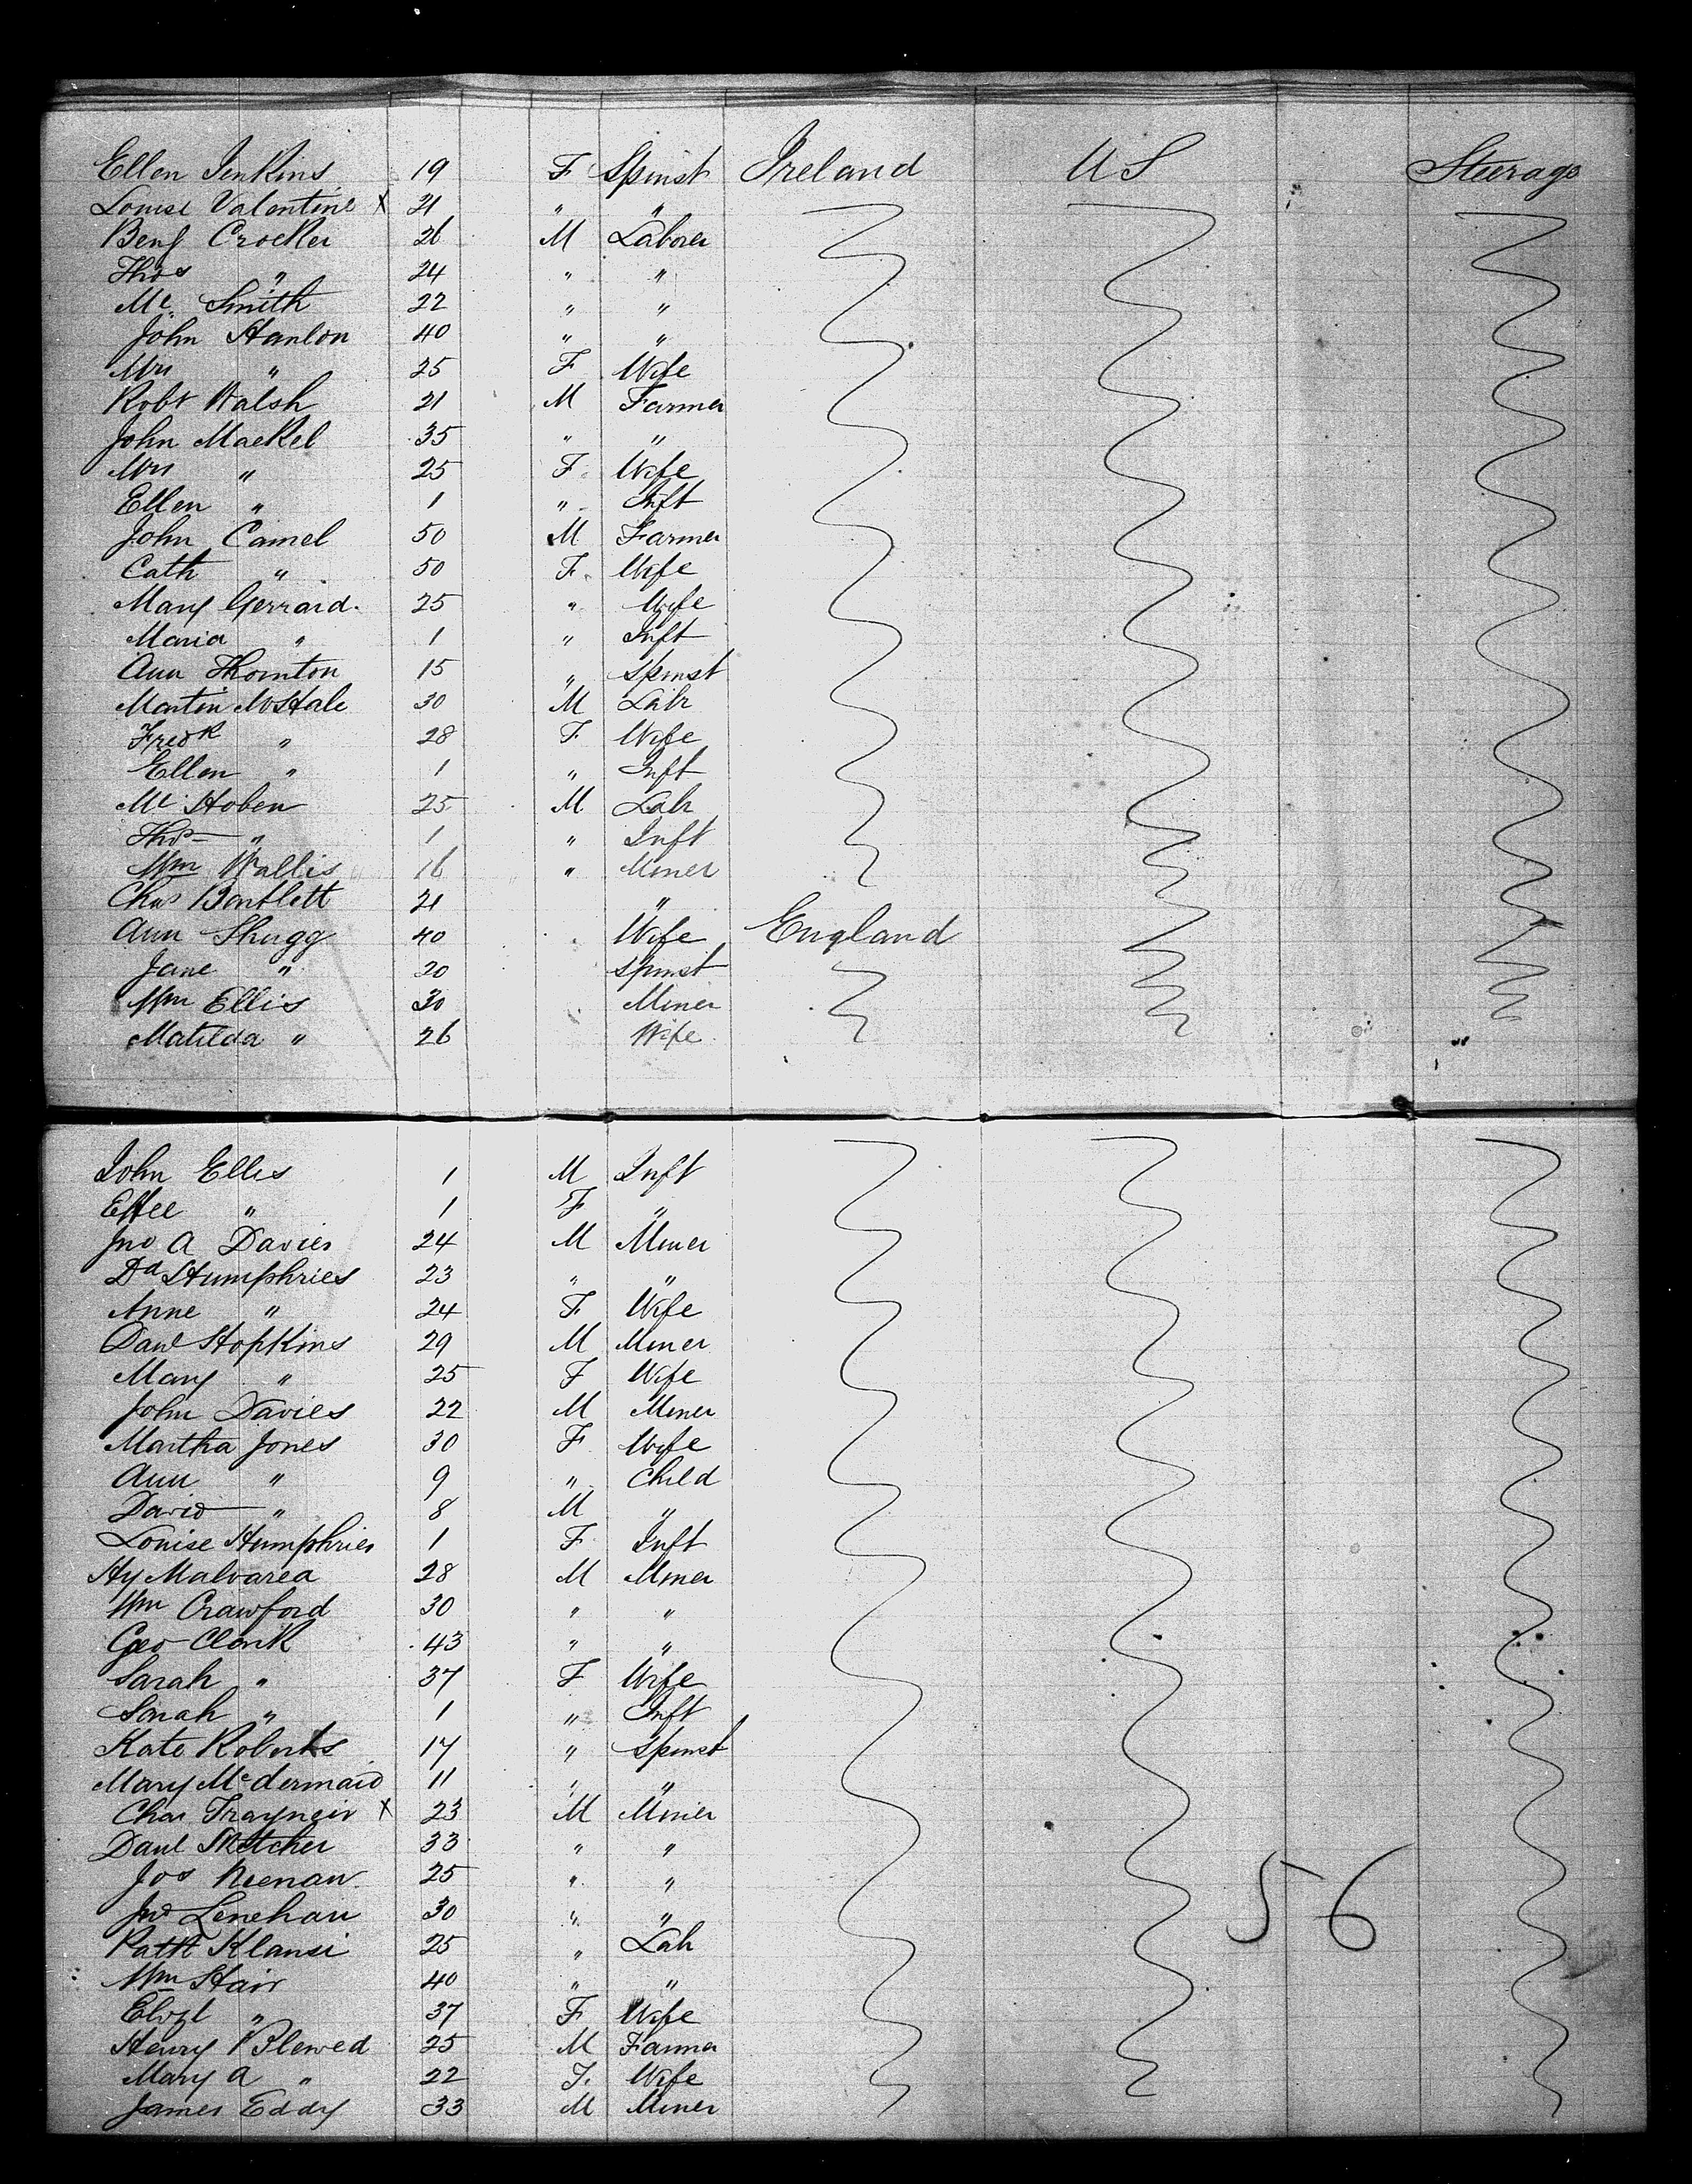 Ellen Jenkins 19 F Spinst Ireland U S Steerage
Louise Valentine X 21 " "
Benj Crocker 26 M Laborer
Thos " 24 " "
Mc Smith 22 " "
John Hanlon 40 " "
Mrs " 25 F Wife
Robt Walsh 21 M Farmer
John Mackel 35 " "
Mrs " 25 F Wife
Ellen " 1 " Inft
John Camel 50 M Farmer
Cath " 50 F Wife
Mary Gerrard 25 " Wife
Maria " 1 " Inft
Ann Thornton 15 " Spinst
Martin McHale 30 M Labr
Fredk " 28 F Wife
Ellen " 1 " Inft
Mc Hoben 25 M Labr
Thos " 1 " Inft
Wm Wallis 16 " Miner
Chas Bartlett 21 "
Ann Shugg 40 Wife England
Jane " 20 Spinst
Wm Ellis 30 Miner
Matilda " 26 Wife "
John Ellis 1 M Inft
Effee " 1 F "
Jno A Davies 24 M Miner
Dd Humphries 23 " "
Anne " 24 F Wife
Danl Hopkins 29 M Miner
Mary " 25 F Wife
John Davies 22 M Miner
Martha Jones 30 F Wife
Ann " 9 " Child
David " 8 M "
Louise Humphries 1 F Inft
Hy Malvarea 28 M Miner
Wm Crawford 30 " "
Geo Clark 43 " "
Sarah " 37 F Wife
Sarah " 1 " Inft
Kate Roberts 17 " Spinst
Mary Mcdermaid 11 " "
Chas X 23 M Miner
Danl 33 " "
Jos Keenan 25 " "
Jno Lenehan 30 " "
Patk Klansi 25 " Lab
Wm Hair 40 " "
Elizt " 37 F Wife
Henry Blewed 25 M Farmer
Mary A " 22 F Wife
James Eddy 33 M Miner
56